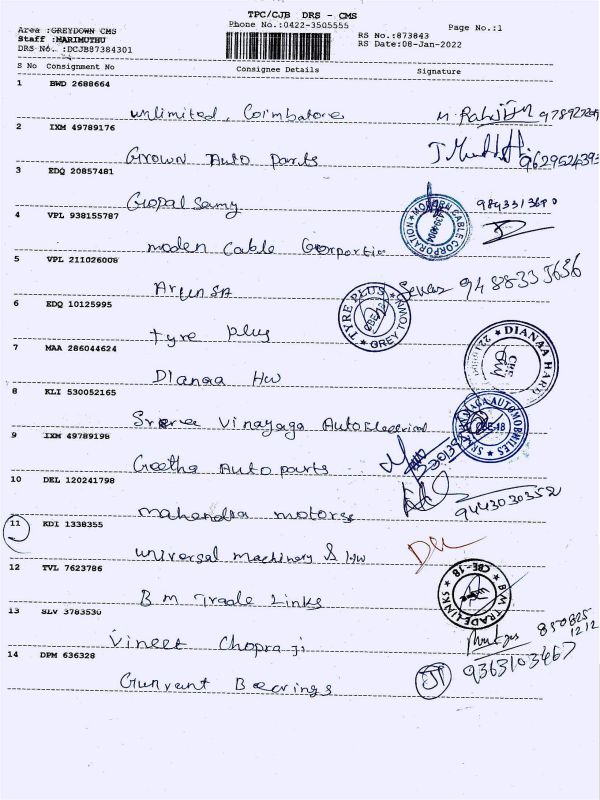 TPC/CJB DRS - CMS
Area :GREYDOWN CMS
Phone No.:0422-3505555
Page No.:1
Staff :MARIMUTHU
RS No.:873843
DRS No. :DCJB87384301
RS Date:08-Jan-2022
S No Consignment No Consignee Details Signature
1 BWD 2688664
unlimited, Coimbatore
2 IXM 49789176
Grown Auto parts 9629524393
3 EDQ 20857481
Gopal Samy
4 VPL 938155787
moden Cable Corportio
MODERN CABLE CORPORATION
5 VPL 211026008
Arun SA 9488335636
6 EDQ 10125995
tyre plus
TYRE PLUS GREY TOWN
7 MAA 286044624
Dianaa Hw
DIANAA HARD
8 KLI 530052165
Sree Vinayaga Auto Electrical
AUTOMOBILES CBE-18
9 IXM 49789198
Geetha Auto parts
10 DEL 120241798
mahendra motors 9443030352
11 KDI 1338355
universal machinery &
12 TVL 7623786
B m Trade Links
B.M TRADELINKS CBE-18
13 SLV 3783530
Vineet Chopra ji 850825
1212
14 DPM 636328
Gunvant Bearings 9363103467